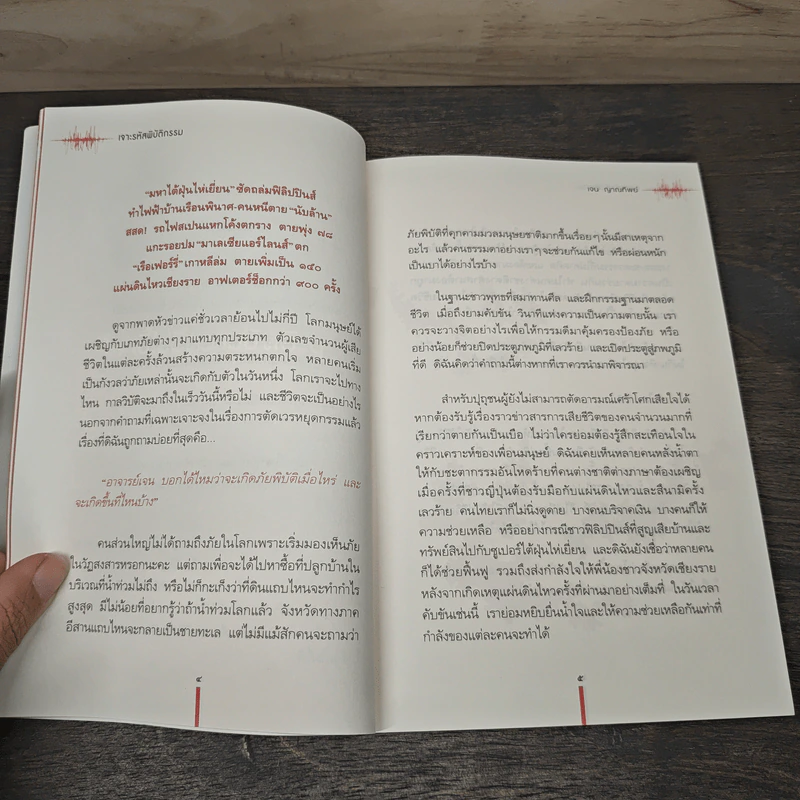 เจาะรหัสพิบัติกรรม
"มหาไต้ฝุ่นไห่เยี่ยน" ซัดถล่มฟิลิปปินส์
ทำไฟฟ้าบ้านเรือนพินาศ-คนหนีตาย "นับล้าน"
สสด! รถไฟสเปนแหกโค้งตกราง ตายพุ่ง ๗๘
แกะรอยปม "มาเลเซียแอร์ไลนส์" ตก
"เรือเฟอร์รี่" เกาหลีล่ม ตายเพิ่มเป็น ๑๔๐
แผ่นดินไหวเชียงราย อาฟเตอร์ช็อกกว่า ๙๐๐ ครั้ง
ดูจากพาดหัวข่าวแค่ชั่วเวลาย้อนไปไม่กี่ปี โลกมนุษย์ได้
เผชิญกับเภทภัยต่างๆ มาแทบทุกประเภท ตัวเลขจำนวนผู้เสีย
ชีวิตในแต่ละครั้งล้วนสร้างความตระหนกตกใจ หลายคนเริ่ม
เป็นกังวลว่าภัยเหล่านั้นจะเกิดกับตัวในวันหนึ่ง โลกเราจะไปทาง
ไหน กาลวิบัติจะมาถึงในเร็ววันนี้หรือไม่ และชีวิตจะเป็นอย่างไร
นอกจากคำถามที่เฉพาะเจาะจงในเรื่องการตัดเวรหยุดกรรมแล้ว
เรื่องที่ดิฉันถูกถามบ่อยที่สุดคือ...
"อาจารย์เจน บอกได้ไหมว่าจะเกิดภัยพิบัติเมื่อไหร่ และ
จะเกิดขึ้นที่ไหนบ้าง"
คนส่วนใหญ่ไม่ได้ถามถึงภัยในโลกเพราะเริ่มมองเห็นภัย
ในวัฏสงสารหรอกนะคะ แต่ถามเพื่อจะได้ไปหาซื้อที่ปลูกบ้านใน
บริเวณที่น้ำท่วมไม่ถึง หรือไม่ก็กะเก็งว่าที่ดินแถบไหนจะทำกำไร
สูงสุด มีไม่น้อยที่อยากรู้ว่าถ้าน้ำท่วมโลกแล้ว จังหวัดทางภาค
อีสานแถบไหนจะกลายเป็นชายทะเล แต่ไม่มีแม้สักคนจะถามว่า
๔
เจน ญาณทิพย์
ภัยพิบัติที่คุกคามมวลมนุษยชาติมากขึ้นเรื่อยๆ นั้นมีสาเหตุจาก
อะไร แล้วคนธรรมดาอย่างเราๆ จะช่วยกันแก้ไข หรือผ่อนหนัก
เป็นเบาได้อย่างไรบ้าง
ในฐานะชาวพุทธที่สมาทานศีล และฝึกกรรมฐานมาตลอด
ชีวิต เมื่อถึงยามคับขัน วินาทีแห่งความเป็นความตายนั้น เรา
ควรจะวางจิตอย่างไรเพื่อให้กรรมดีมาคุ้มครองป้องภัย หรือ
อย่างน้อยก็ช่วยปิดประตูภพภูมิที่เลวร้าย และเปิดประตูสู่ภพภูมิ
ที่ดี ดิฉันคิดว่าคำถามนี้ต่างหากที่เราควรนำมาพิจารณา
สำหรับปุถุชนผู้ยังไม่สามารถตัดอารมณ์เศร้าโศกเสียใจได้
หากต้องรับรู้เรื่องราวข่าวสารการเสียชีวิตของคนจำนวนมากที่
เรียกว่าตายกันเป็นเบือ ไม่ว่าใครย่อมต้องรู้สึกสะเทือนใจใน
คราวเคราะห์ของเพื่อนมนุษย์ ดิฉันเคยเห็นหลายคนหลั่งน้ำตา
ให้กับชะตากรรมอันโหดร้ายที่คนต่างชาติต่างภาษาต้องเผชิญ
เมื่อครั้งที่ชาวญี่ปุ่นต้องรับมือกับแผ่นดินไหวและสึนามิครั้ง
เลวร้าย คนไทยเราก็ไม่นิ่งดูดาย บางคนบริจาคเงิน บางคนก็ให้
ความช่วยเหลือ หรืออย่างกรณีชาวฟิลิปปินส์ที่สูญเสียบ้านและ
ทรัพย์สินไปกับซูเปอร์ไต้ฝุ่นไห่เยี่ยน และดิฉันยังเชื่อว่าหลายคน
ก็ได้ช่วยฟื้นฟู รวมถึงส่งกำลังใจให้พี่น้องชาวจังหวัดเชียงราย
หลังจากเกิดเหตุแผ่นดินไหวครั้งที่ผ่านมาอย่างเต็มที่ ในวันเวลา
คับขันเช่นนี้ เราย่อมหยิบยื่นน้ำใจและให้ความช่วยเหลือกันเท่าที่
กำลังของแต่ละคนจะทำได้
๕